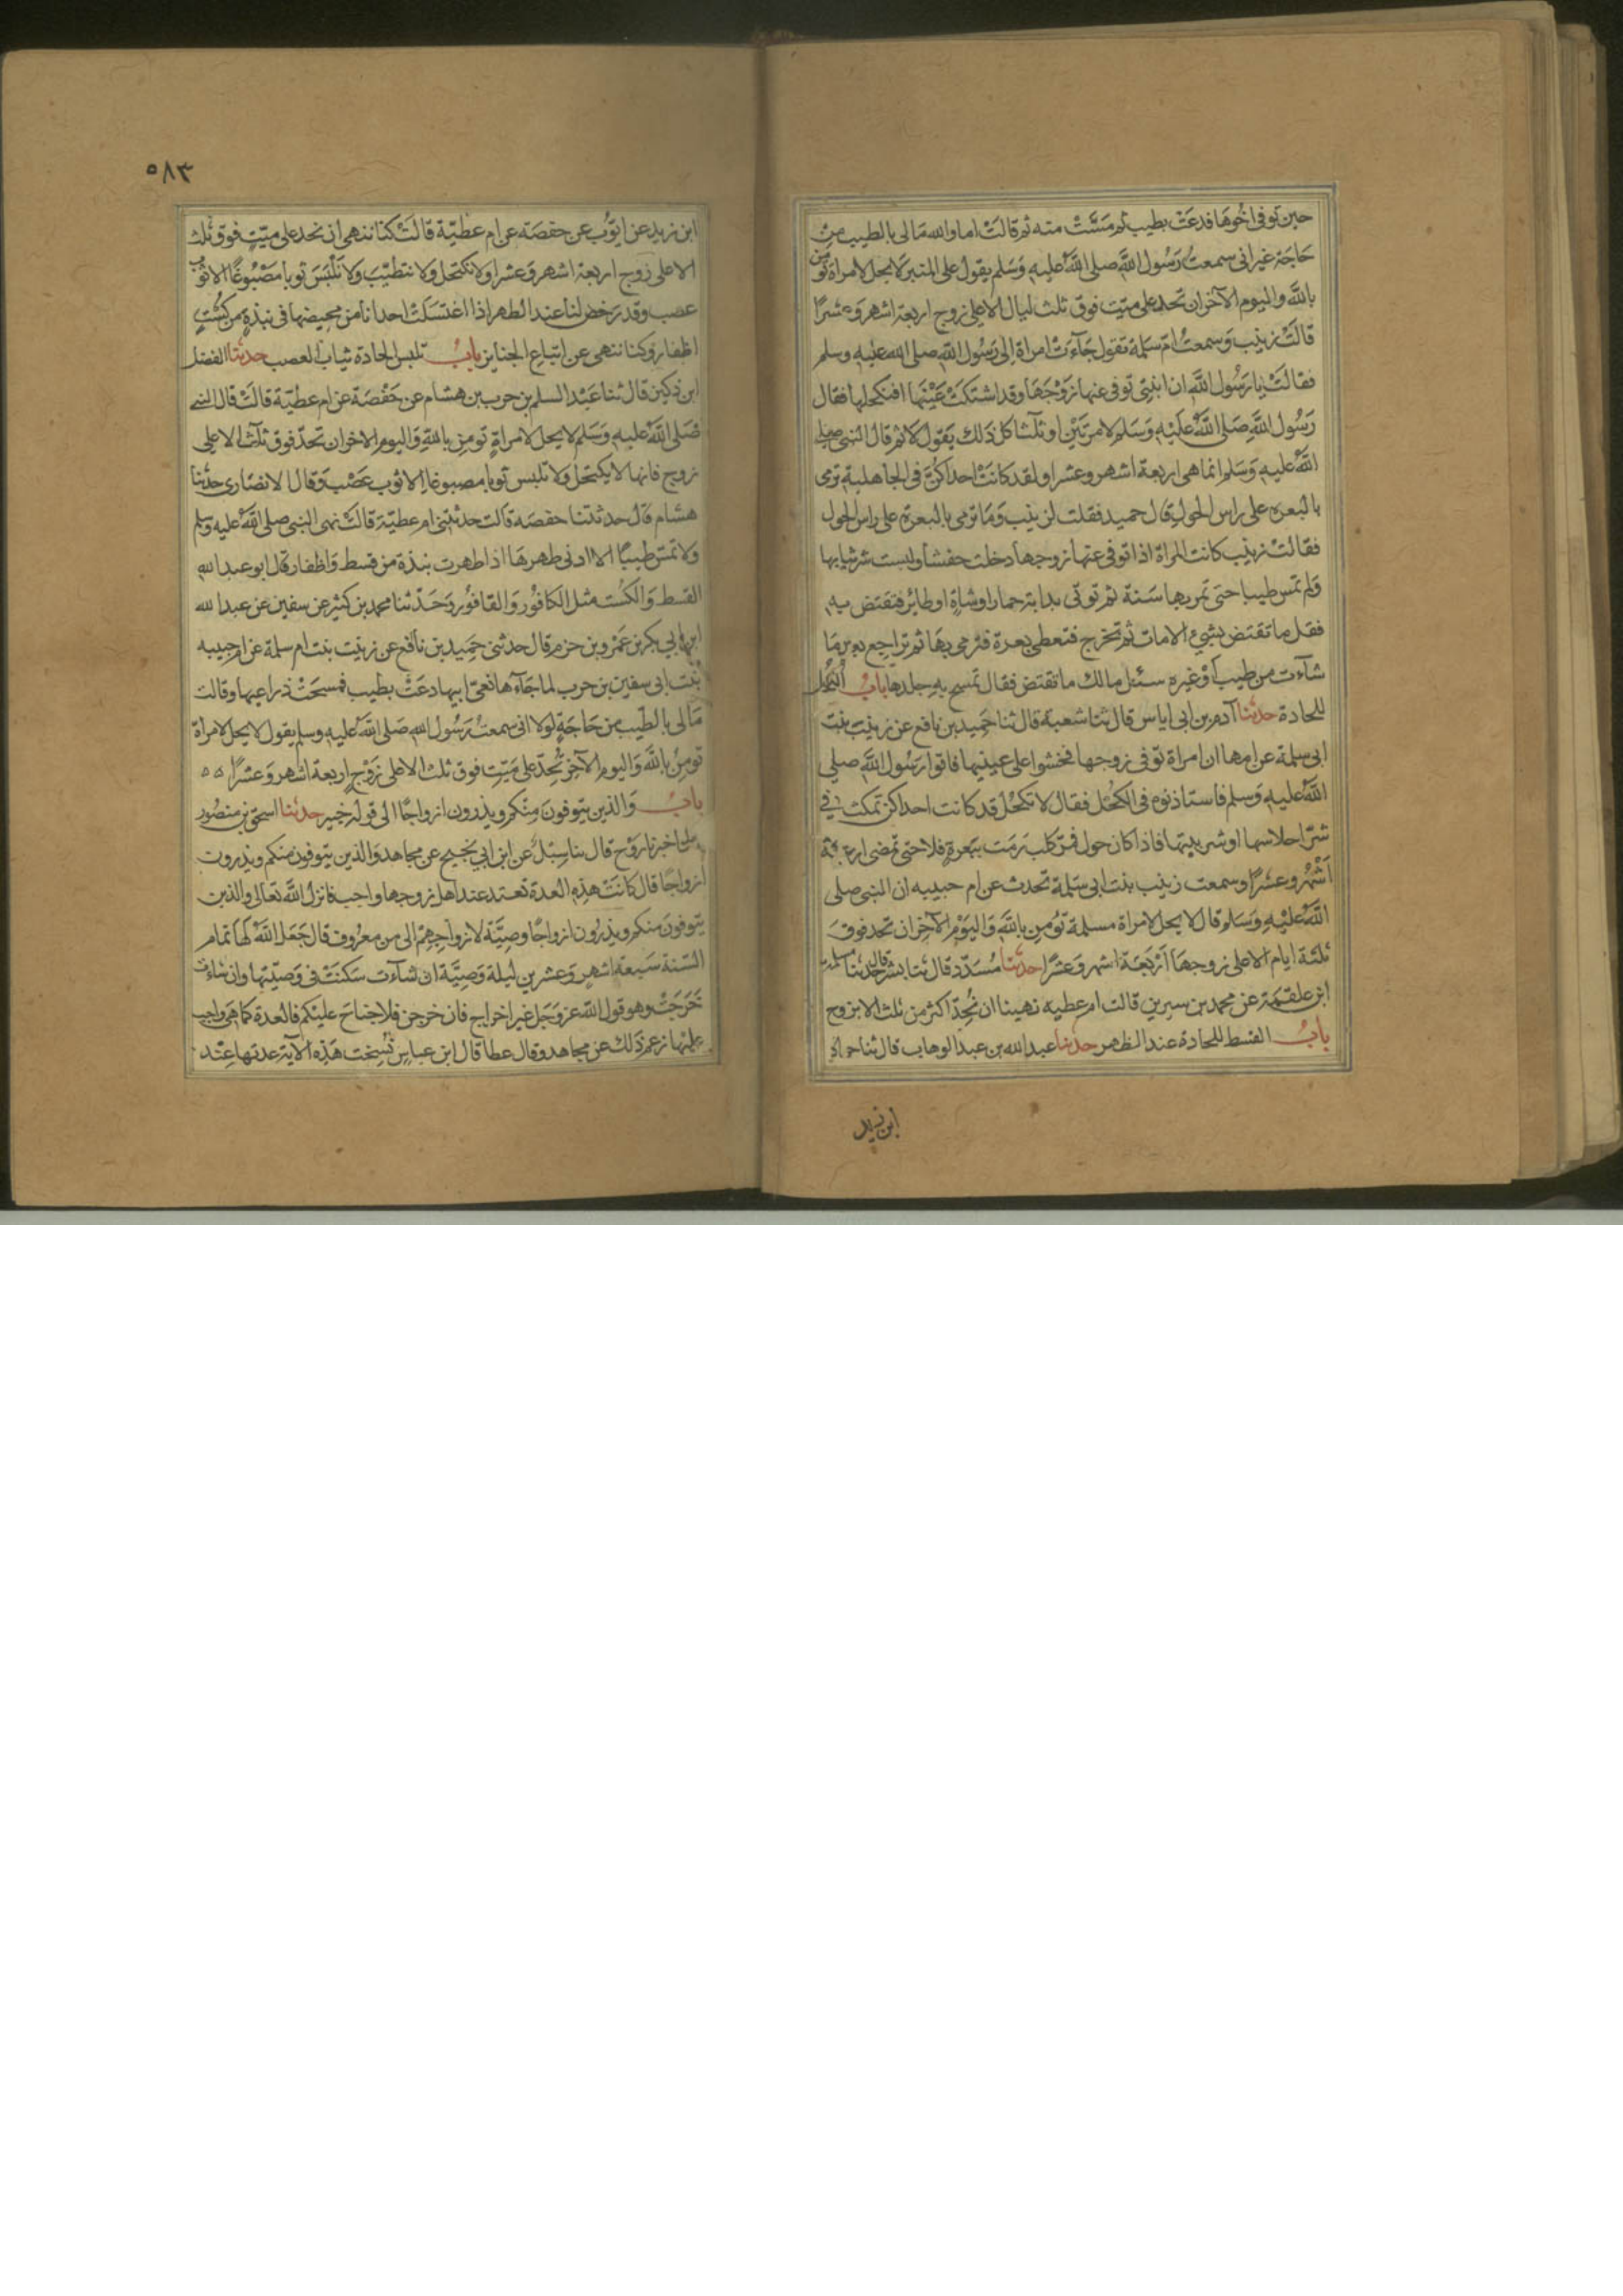 حين توفى اخوها فدعت بطيب ثم مسّت منه ثم قالت اما والله مالى بالطيب من
حاجة غير انى سمعت رسول الله صلى الله عليه وسلم يقول على المنبر لا يحل لامراة تومن
بالله واليوم الآخر ان تحد على ميت فوق ثلث ليال الا على زوج اربعة اشهر وعشرًا
قالت زينب وسمعت ام سلمة تقول جآءت امراة الى رسول الله صلى الله عليه وسلم
فقالت يا رسول الله ان ابنتى توفى عنها زوجها وقد اشتكت عينها افنكحلها فقال
رسول الله صلى الله عليه وسلم لا مرتين او ثلثا كل ذلك يقول لا ثم قال النبى صلى
الله عليه وسلم انما هى اربعة اشهر وعشرا ولقد كانت احداكن فى الجاهلية ترمى
بالبعرة على راس الحول قال حميد فقلت لزينب وما ترمى بالبعرة على راس الحول
فقالت زينب كانت المراة اذا توفى عنها زوجها دخلت حفشا ولبست شر ثيابها
ولم تمس طيبا حتى تمر بها سنة ثم توتى بدابة حمار او شاة او طائر فتفتض به
فقل ما تفتض بشئ الا مات ثم تخرج فتعطى بعرة فترمى بها ثم تراجع بعد ما
شآءت من طيب او غيره سئل مالك ما تفتض فقال تمسح به جلدها باب الكحل
للحادة حدثنا آدم بن ابى اياس قال ثنا شعبة قال ثنا حميد بن نافع عن زينب بنت
ابى سلمة عن امها ان امراة توفى زوجها فخشوا على عينيها فاتوا رسول الله صلى
الله عليه وسلم فاستاذنوه فى الكحل فقال لا تكحل قد كانت احداكن تمكث فى
شر احلاسها او شر بيتها فاذا كان حول فمر كلب رمت ببعرة فلا حتى تمضى اربعة
اشهر وعشرًا وسمعت زينب بنت ابى سلمة تحدث عن ام حبيبه ان النبى صلى
الله عليه وسلم قال لا يحل لامراة مسلمة تومن بالله واليوم الآخر ان تحد فوق
ثلثة ايام الا على زوجها اربعة اشهر وعشرًا حدثنا مسدد قال ثنا بشر قال حدثنا سلمه
ابن علقمة عن محمد بن سيرين قالت ام عطيه نهينا ان نحد اكثر من ثلث الا بزوج
باب القسط للحادة عند الطهر حدثنا عبد الله بن عبد الوهاب قال ثنا حماد
ابن زيد
٥٨٣
ابن زيد عن ايوب عن حفصة عن ام عطية قالت كنا ننهى ان نحد على ميت فوق ثلث
الا على زوج اربعة اشهر وعشرا ولا نكتحل ولا نتطيب ولا نلبس ثوبا مصبوغا الا ثوب
عصب وقد رخص لنا عند الطهر اذا اغتسلت احدانا من محيضها فى نبذة من كست
اظفار وكنا ننهى عن اتباع الجنايز باب تلبس الحادة ثياب العصب حدثنا الفضل
ابن دكين قال ثنا عبد السلم بن حرب بن هشام عن حفصة عن ام عطية قالت قال النبى
صلى الله عليه وسلم لا يحل لامراة تومن بالله واليوم الاخر ان تحد فوق ثلاث الا على
زوج فانها لا يكتحل ولا تلبس ثوبا مصبوغا الا ثوب عصب وقال الانصارى حدثنا
هشام قال حدثتنا حفصة قالت حدثتنى ام عطية قالت نهى النبى صلى الله عليه وسلم
ولا تمس طيبًا الا ادنى طهرها اذا طهرت نبذة من قسط واظفار قال ابو عبد الله
القسط والكست مثل الكافور والقافور وحدثنا محمد بن كثير عن سفين عن عبد الله
ابن ابي بكر بن عمرو بن حزم قال حدثنى حميد بن نافع عن زينب بنت ام سلمة عن ام حبيبه
بنت ابى سفين بن حرب لما جآءها نعى ابيها دعت بطيب فمسحت ذراعيها وقالت
مالى بالطيب من حاجة لولا انى سمعت رسول الله صلى الله عليه وسلم يقول لا يحل لامراة
تومن بالله واليوم الآخر تحد على ميت فوق ثلث الا على زوج اربعة اشهر وعشرًا
باب والذين يتوفون منكم ويذرون ازواجًا الى قوله خبير حدثنا اسحق بن منصور
اخبرنا روح قال ثنا سبل عن ابن ابي نجيح عن مجاهد والذين يتوفون منكم ويذرون
ازواجًا قال كانت هذه العدة تعتد عند اهل زوجها واجب فانزل الله تعالى والذين
يتوفون منكم ويذرون ازواجًا وصية لازواجهم الى من معروف قال جعل الله لها تمام
السنة سبعة اشهر وعشرين ليلة وصية ان شآءت سكنت فى وصيتها وان شاءت
خرجت وهو قول الله عز وجل غير اخراج فان خرجن فلا جناح عليكم فالعدة كما هى واجب
عليها زعم ذلك عن مجاهد وقال عطا قال ابن عباس نسخت هذه الآية عدتها عند